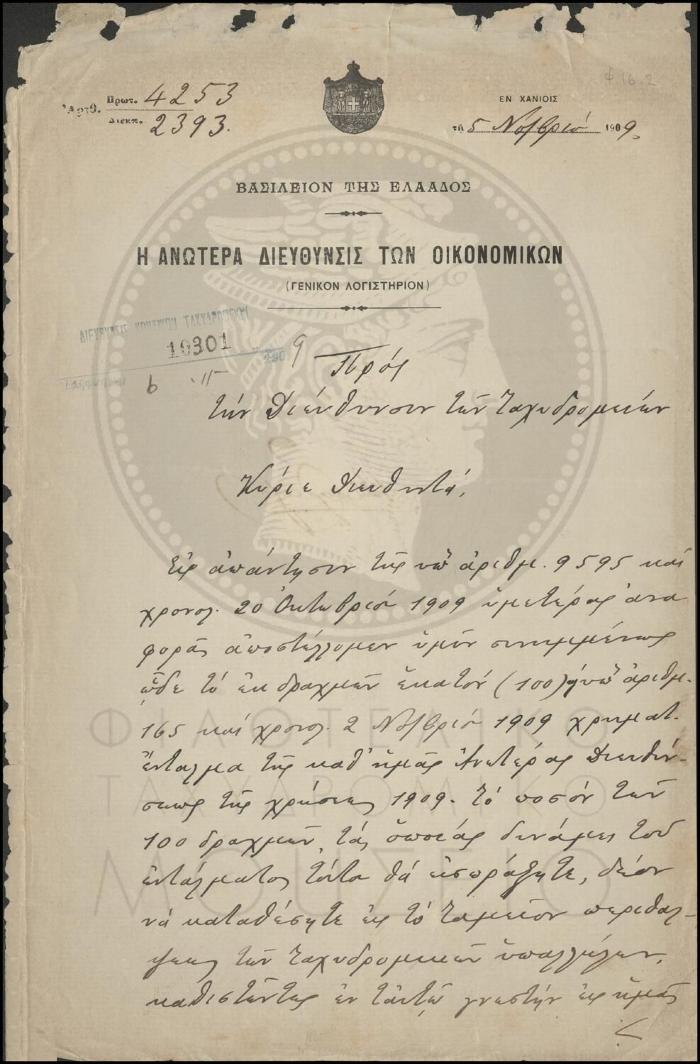 φ 16.2
Ἀριθ. Πρωτ. 4253
Διεκπ. 2393.
ΕΝ ΧΑΝΙΟΙΣ
τῇ 5 Νοβρίου 1909.
ΒΑΣΙΛΕΙΟΝ ΤΗΣ ΕΛΛΑΔΟΣ
Η ΑΝΩΤΕΡΑ ΔΙΕΥΘΥΝΣΙΣ ΤΩΝ ΟΙΚΟΝΟΜΙΚΩΝ
(ΓΕΝΙΚΟΝ ΛΟΓΙΣΤΗΡΙΟΝ)
ΔΙΕΥΘΥΝΣΙΣ ΚΡΗΤΙΚΩΝ ΤΑΧΥΔΡΟΜΕΙΩΝ
10301
190 9
6 . 11
Πρός
τὴν Διεύθυνσιν τῶν Ταχυδρομείων
Κύριε Διευθυντά,
Εἰς ἀπάντησιν τῆς ὑπ' ἀριθμ. 9595 καὶ
χρονολ. 20 Ὀκτωβρίου 1909 ὑμετέρας ἀνα
φορᾶς ἀποστέλλομεν ὑμῖν συνημμένως
ὧδε τὸ ἐκ δραχμῶν ἑκατόν (100) ὑπ' ἀριθμ.
165 καὶ χρονολ. 2 Νοβρίου 1909 χρηματ.
ἔνταλμα τῆς καθ' ἡμᾶς Ἀνωτέρας Διευθύν-
σεως τῆς χρήσεως 1909. Τὸ ποσὸν τῶν
100 δραχμῶν, τὰς ὁποίας δυνάμει τοῦ
ἐντάλματος τούτου θὰ εἰσπράξητε, δέον
νὰ καταθέσητε εἰς τὸ Ταμεῖον περιθάλ-
ψεως τῶν Ταχυδρομικῶν ὑπαλλήλων,
καθιστῶντες ἐν ταὐτῷ γνωστὴν εἰς ἡμᾶς
ΦΙΛΟΤΕΛΙΚΟ
ΤΑΧΥΔΡΟΜΙΚΟ
ΜΟΥΣΕΙΟ